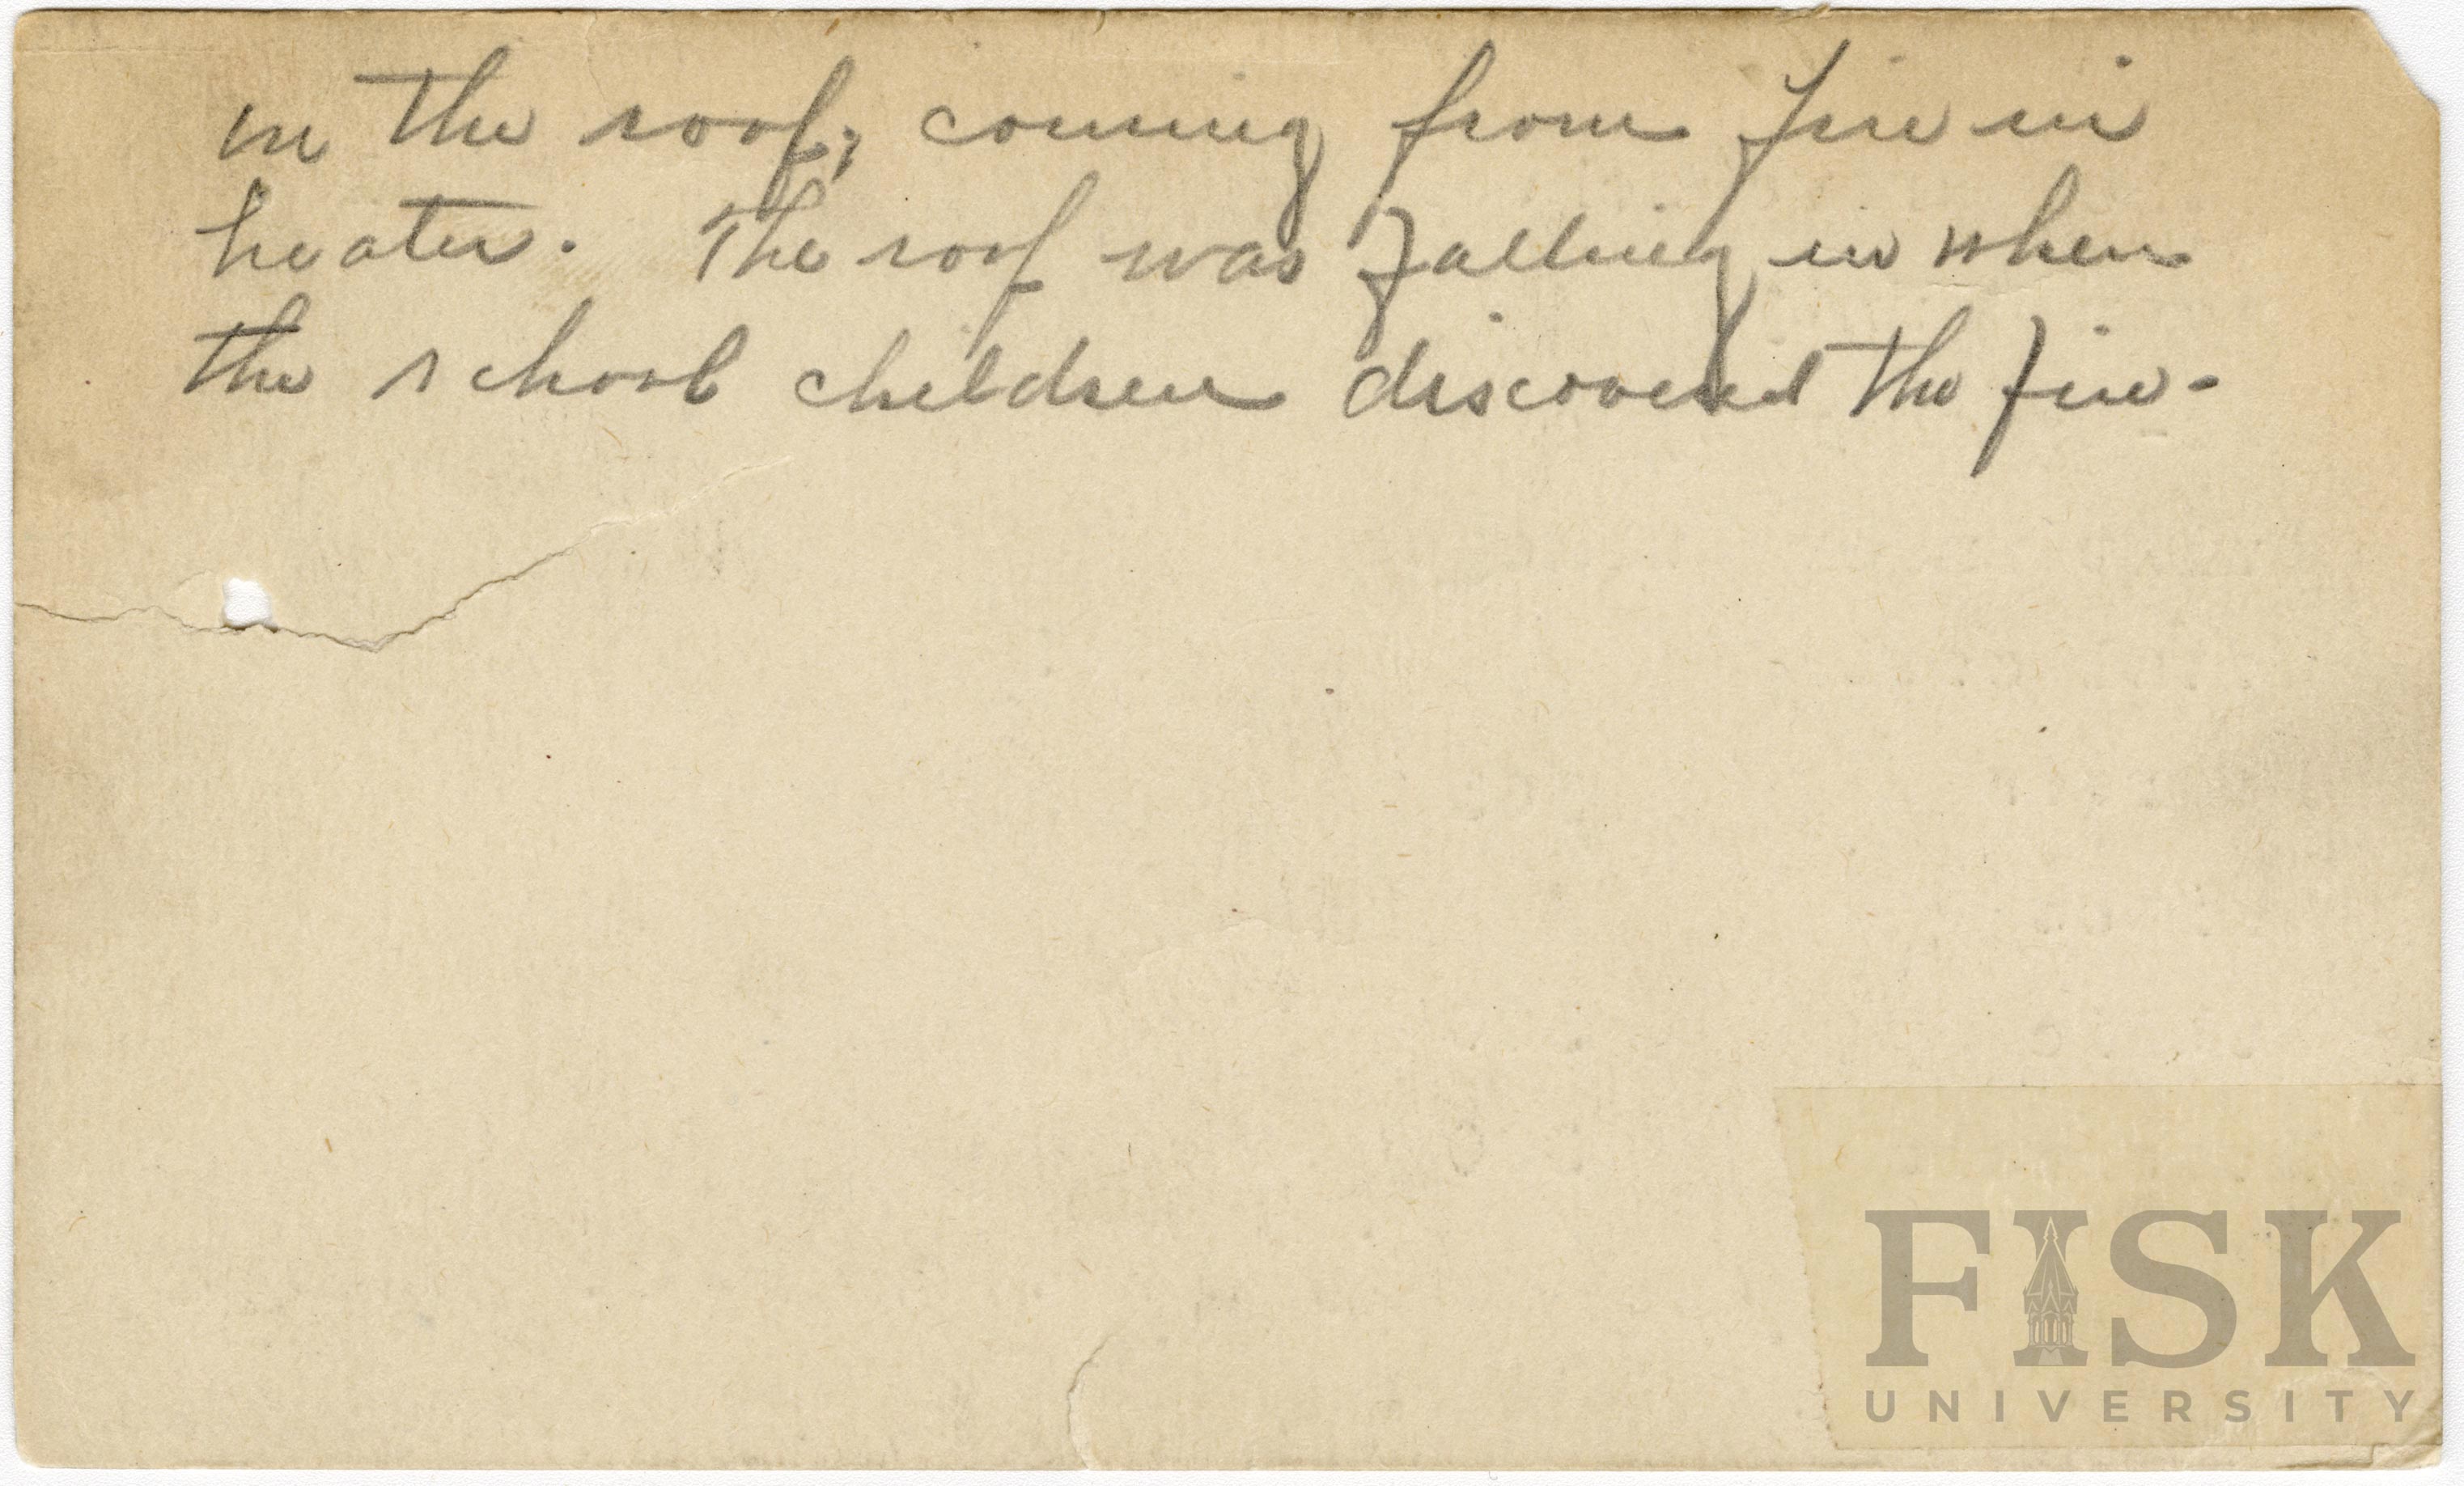 in the roof; coming from fire in
heater. The roof was falling in when
the school children discovered the fire.
FISK
UNIVERSITY